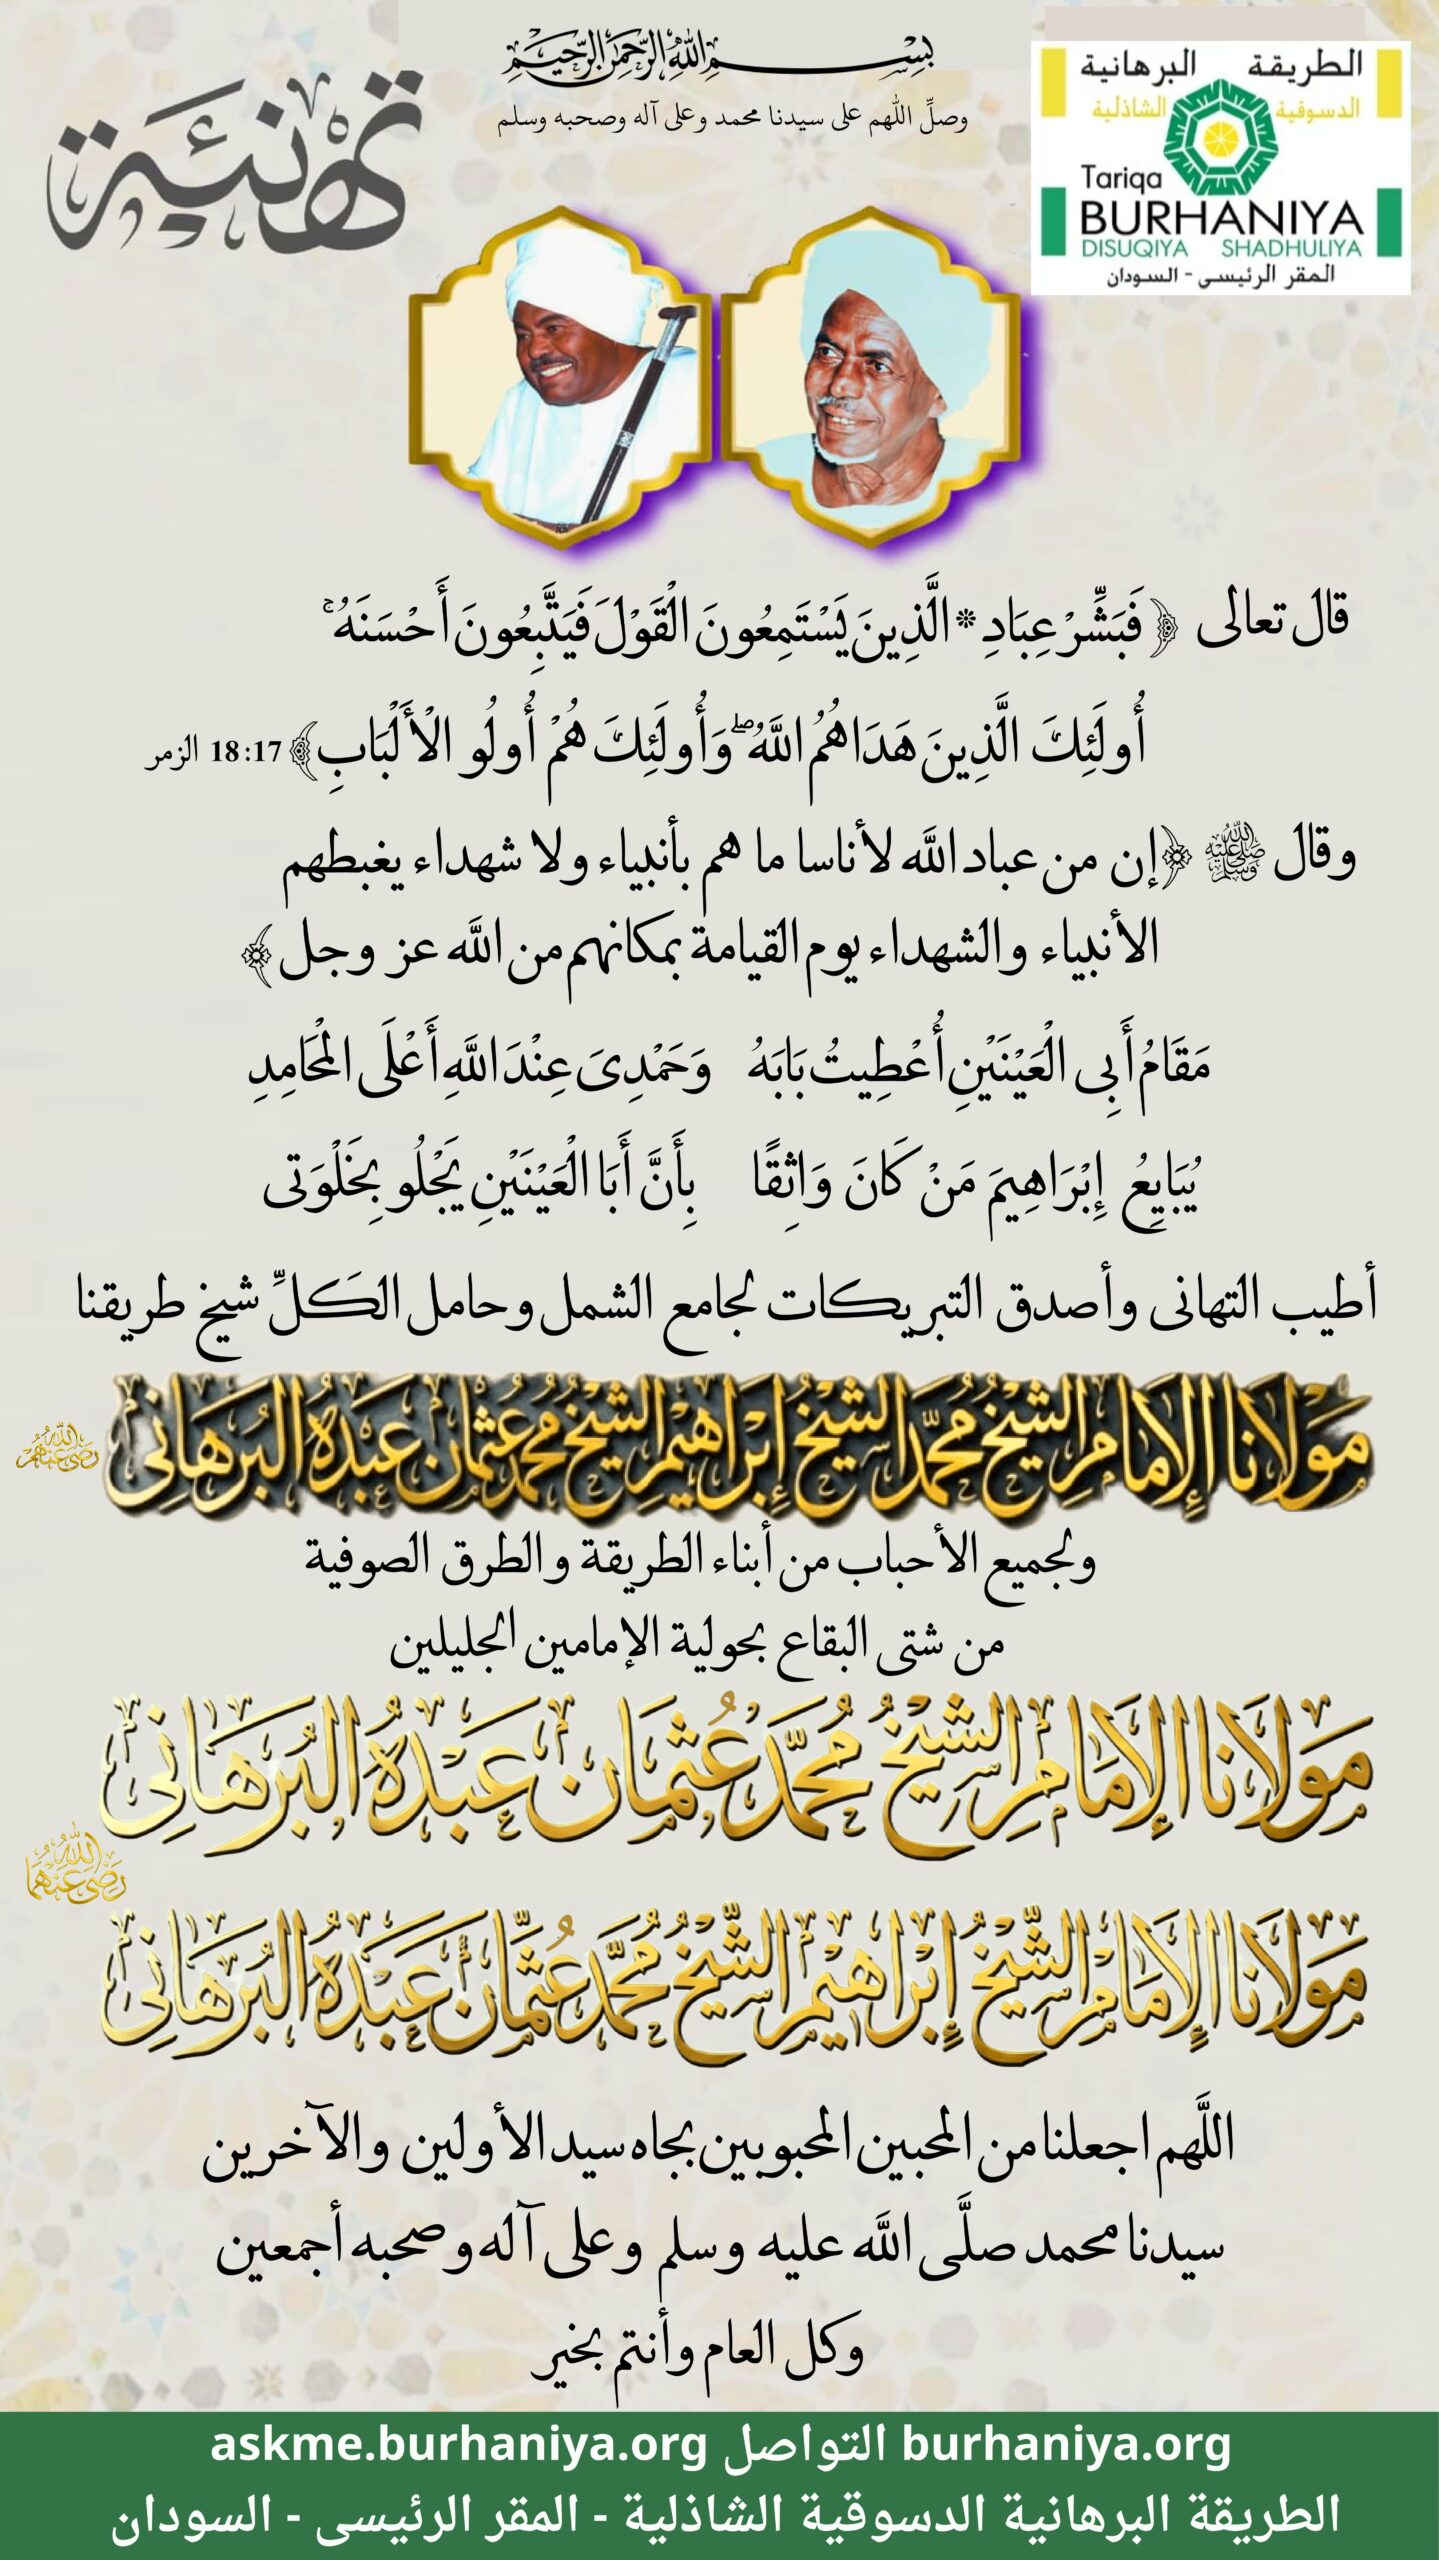 بِسْمِ اللهِ الرَّحْمٰنِ الرَّحِيمِ
وصلِّ اللهم على سيدنا محمد وعلى آله وصحبه وسلم
تهنئة
الطريقة البرهانية
الدسوقية الشاذلية
Tariqa
BURHANIYA
DISUQIYA SHADHULIYA
المقر الرئيسى - السودان
قال تعالى ﴿فَبَشِّرْ عِبَادِ * الَّذِينَ يَسْتَمِعُونَ الْقَوْلَ فَيَتَّبِعُونَ أَحْسَنَهُ ۚ
أُولَئِكَ الَّذِينَ هَدَاهُمُ اللَّهُ ۖ وَأُولَئِكَ هُمْ أُولُو الْأَلْبَابِ﴾ 18:17 الزمر
وقال ﷺ ﴿إن من عباد الله لأناسا ما هم بأنبياء ولا شهداء يغبطهم
الأنبياء والشهداء يوم القيامة بمكانهم من الله عز وجل﴾
مَقَامُ أَبِى الْعَيْنَيْنِ أُعْطِيتُ بَابَهُ وَحَمْدِىَ عِنْدَ اللَّهِ أَعْلَى الْمَحَامِدِ
يُبَايِعُ إِبْرَاهِيمَ مَنْ كَانَ وَاثِقًا بِأَنَّ أَبَا الْعَيْنَيْنِ يَجْلُو بِخَلْوَتِى
أطيب التهانى وأصدق التبريكات لجامع الشمل وحامل الكَلِّ شيخ طريقنا
مولانا الإمام الشيخ محمد الشيخ إبراهيم الشيخ محمد عثمان عبده البرهاني
رضي الله عنهم
ولجميع الأحباب من أبناء الطريقة والطرق الصوفية
من شتى البقاع بحولية الإمامين الجليلين
مولانا الإمام الشيخ محمد عثمان عبده البرهاني
رضي الله عنهما
مولانا الإمام الشيخ إبراهيم الشيخ محمد عثمان عبده البرهاني
اللَّهم اجعلنا من المحبين المحبوبين بجاه سيد الأولين والآخرين
سيدنا محمد صلَّى الله عليه وسلم وعلى آله وصحبه أجمعين
وكل العام وأنتم بخير
burhaniya.org التواصل askme.burhaniya.org
الطريقة البرهانية الدسوقية الشاذلية - المقر الرئيسى - السودان